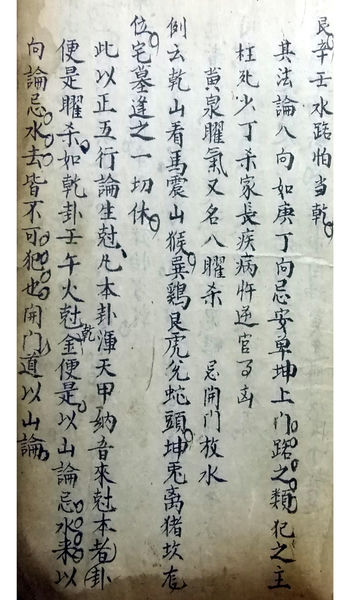 艮辛壬水路怕当乾
其法論八向如庚丁向忌安單坤上门路之類犯之主
枉死少丁杀家長疾病忤逆官司凶
黄泉曜氣又名八曜杀 忌開門放水
例云乾山看馬震山猴巽鷄艮虎兌蛇頭坤兎离猪坎
位宅墓逢之一切休
此以正五行論生尅凡本卦渾天甲納音來尅本者卦
便是曜杀如乾卦壬午火尅乾金便是以山論忌水来以
向論忌水去皆不可犯也開門道以山論